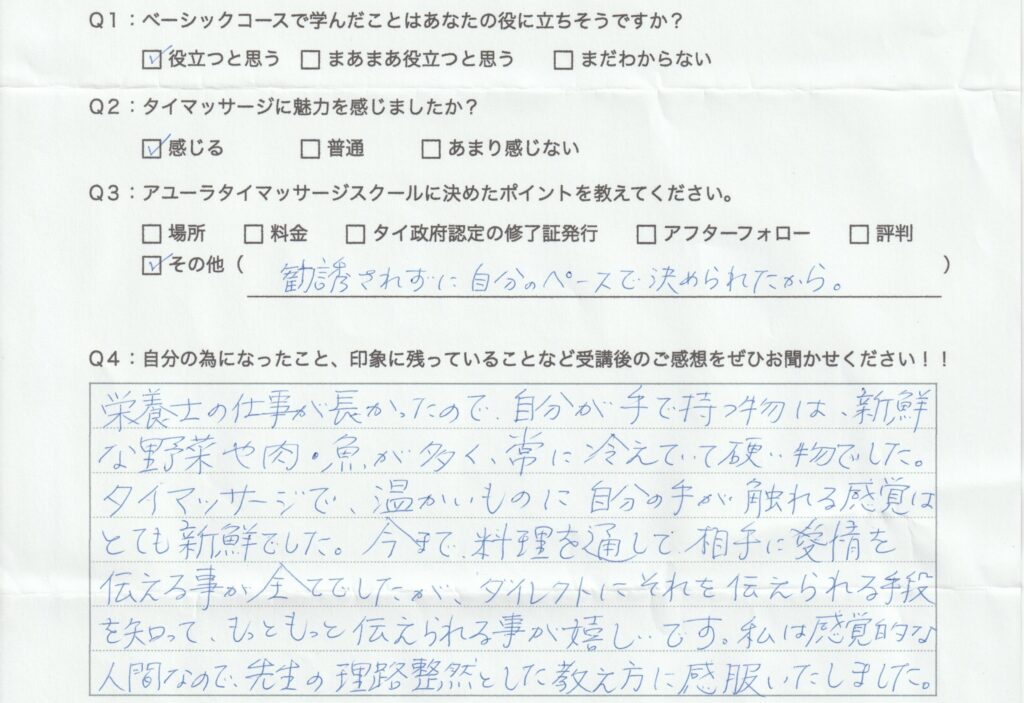 Q1：ベーシックコースで学んだことはあなたの役に立ちそうですか？
☑役立つと思う □まあまあ役立つと思う □まだわからない
Q2：タイマッサージに魅力を感じましたか？
☑感じる □普通 □あまり感じない
Q3：アユーラタイマッサージスクールに決めたポイントを教えてください。
□場所 □料金 □タイ政府認定の修了証発行 □アフターフォロー □評判
☑その他（勧誘されずに自分のペースで決められたから。）
Q4：自分の為になったこと、印象に残っていることなど受講後のご感想をぜひお聞かせください！！
栄養士の仕事が長かったので、自分が手で持つ物は、新鮮
な野菜や肉・魚が多く、常に冷えていて硬い物でした。
タイマッサージで、温かいものに自分の手が触れる感覚は
とても新鮮でした。今まで、料理を通して、相手に愛情を
伝える事が全てでしたが、ダイレクトにそれを伝えられる手段
を知って、もっともっと伝えられる事が嬉しいです。私は感覚的な
人間なので、先生の理路整然とした教え方に感服いたしました。